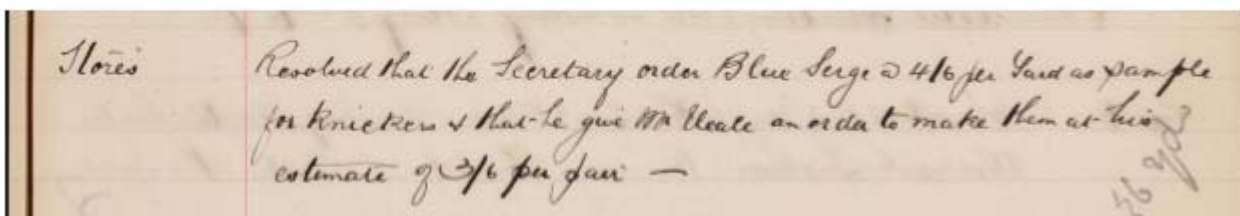 Stores
Resolved that the Secretary order Blue Serge @ 4/6 per Yard as sample
for Knickers & that he give Mr Veale an order to make them at his
estimate of 3/6 per pair —
36 yd